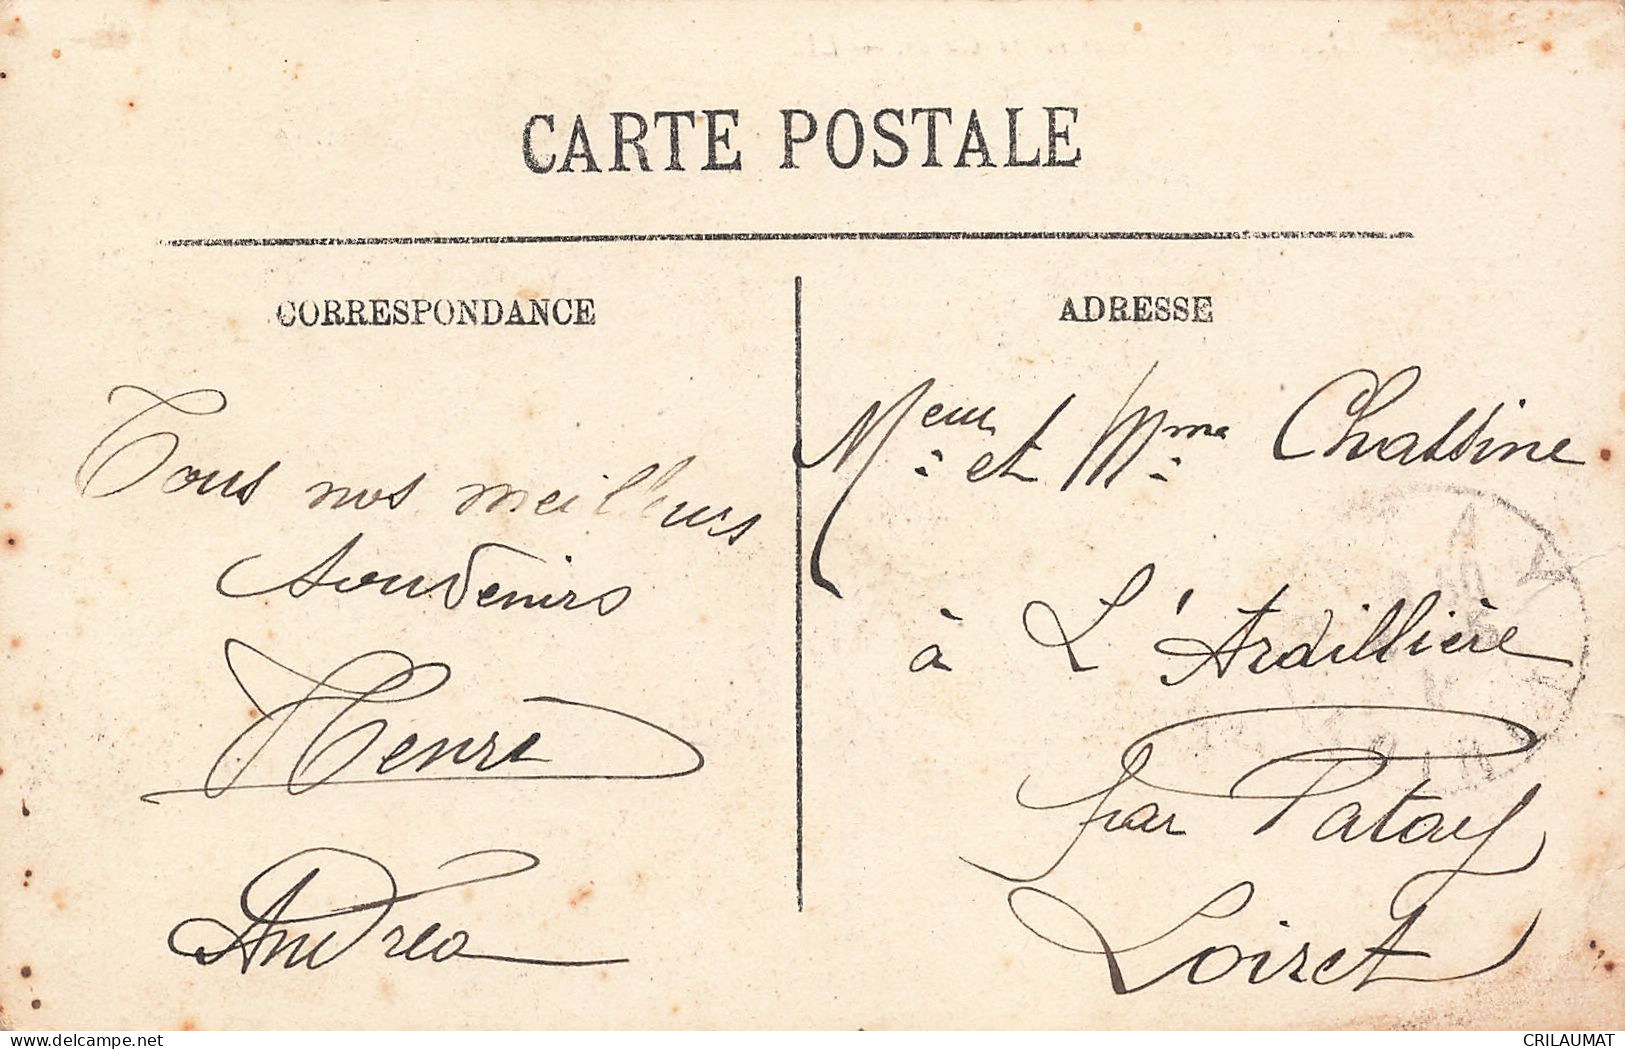 CARTE POSTALE
CORRESPONDANCE
Tous nos meilleurs
souvenirs
Henri
Andréa
ADRESSE
Meur et Mme Chassine
à L'Ardillière
par Patay
Loiret
delcampe.net
CRILAUMAT